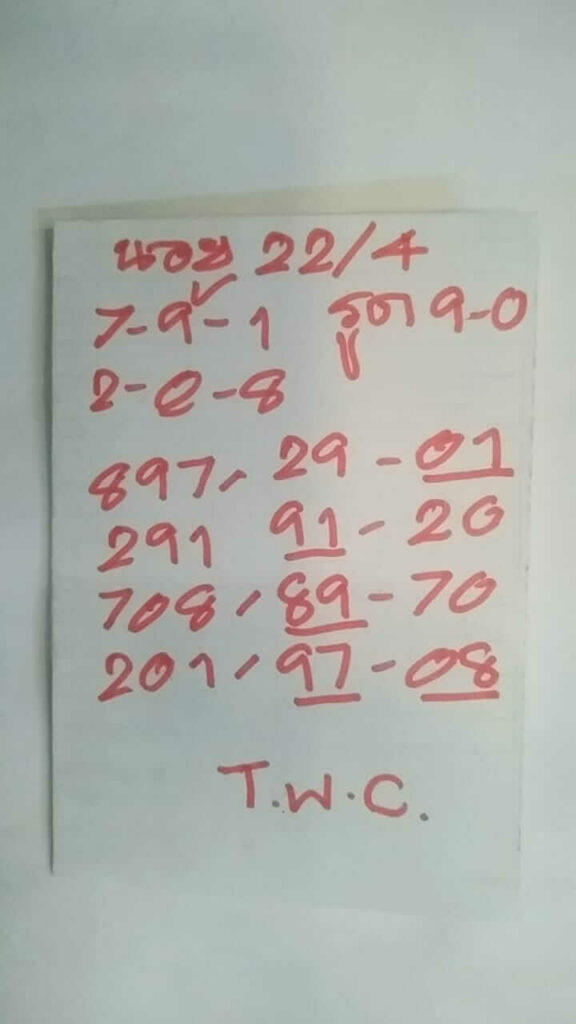 นอย 22/4
7-9-1 รูด 9-0
2-0-8
897, 29-01
291 91-20
708, 89-70
201, 97-08
T.W.C.